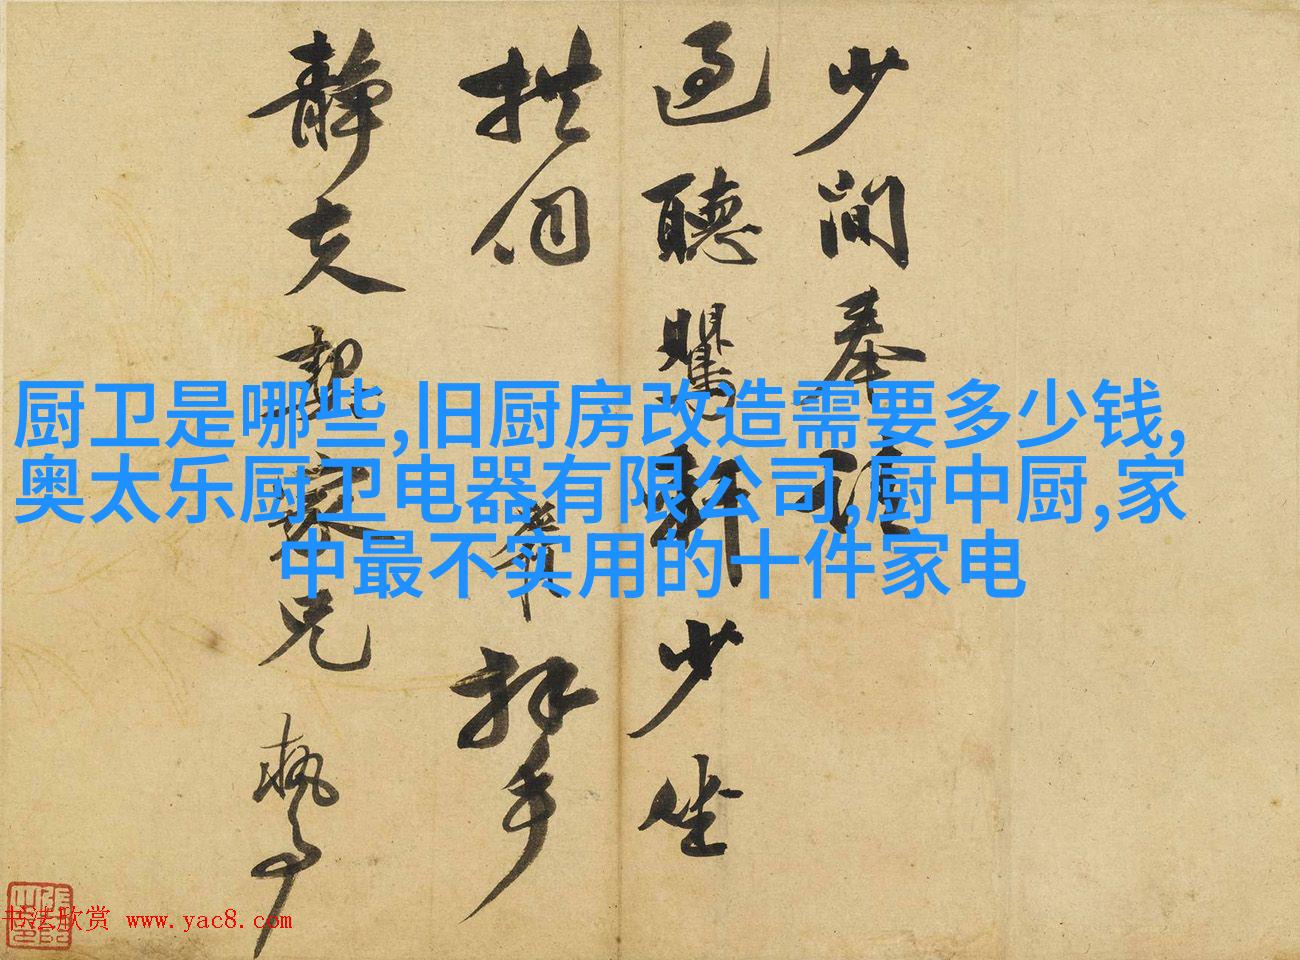 厨卫是哪些,旧厨房改造需要多少钱,
奥太乐厨卫电器有限公司,厨中厨,家
中最不实用的十件家电
少间奉
过听
少坐
拱伺
拜手
静夫
家兄
执事
书法欣赏 www.yac8.com